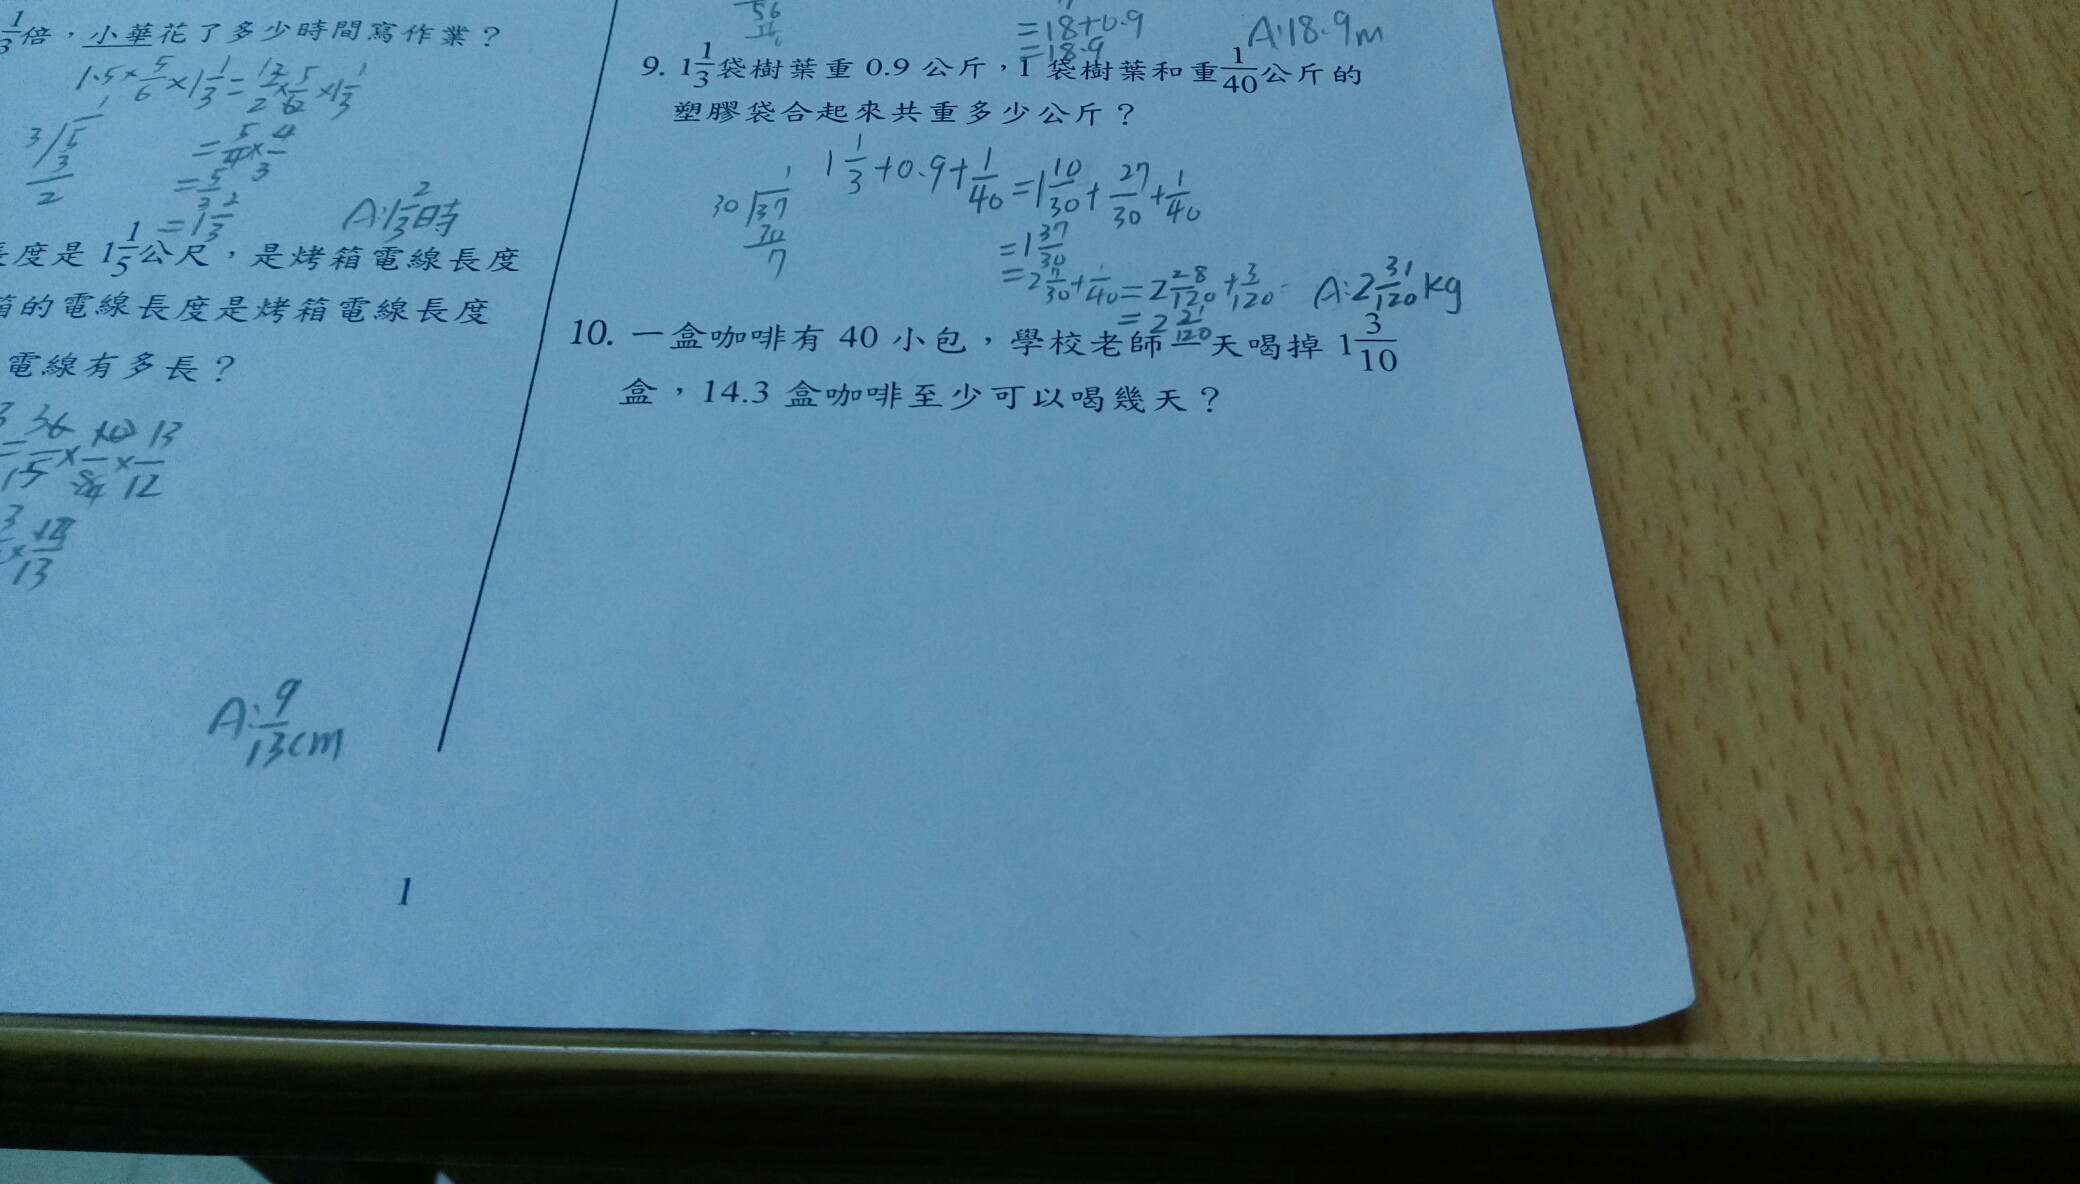 1/3倍，小華花了多少時間寫作業？
1.5×5/6×1 1/3=
×1 1/3
=5/4×4/3
=5/3
=1 2/3
A:1 2/3時
長度是 1 1/5公尺，是烤箱電線長度
箱的電線長度是烤箱電線長度
電線有多長？
A:9/13cm
1
=18+0.9
=18.9
A:18.9m
9. 1 1/3袋樹葉重 0.9 公斤，1 袋樹葉和重1/40公斤的
塑膠袋合起來共重多少公斤？
1 1/3+0.9+1/40=1 10/30+27/30+1/40
=1 37/30
=2 7/30+1/40=2 28/120+3/120
A:2 31/120kg
10. 一盒咖啡有 40 小包，學校老師一天喝掉 1 3/10
盒，14.3 盒咖啡至少可以喝幾天？